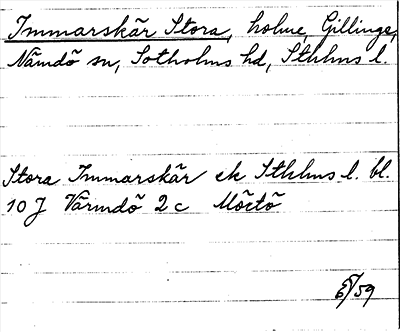 Immarskär Stora, holme, Gillinge,
Nämdö sn, Sotholms hd, Sthlms l.
Stora Immarskär ek Sthlms l. bl.
10 J Värmdö 2 c Möctö
/59